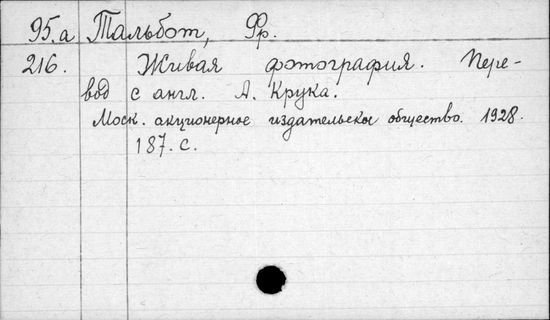 95.а Тальбот, Фр.
216. Живая фотография. Пере-
вод с англ. А. Крука.
Моск. акционерное издательское общество. 1928.
187. с.